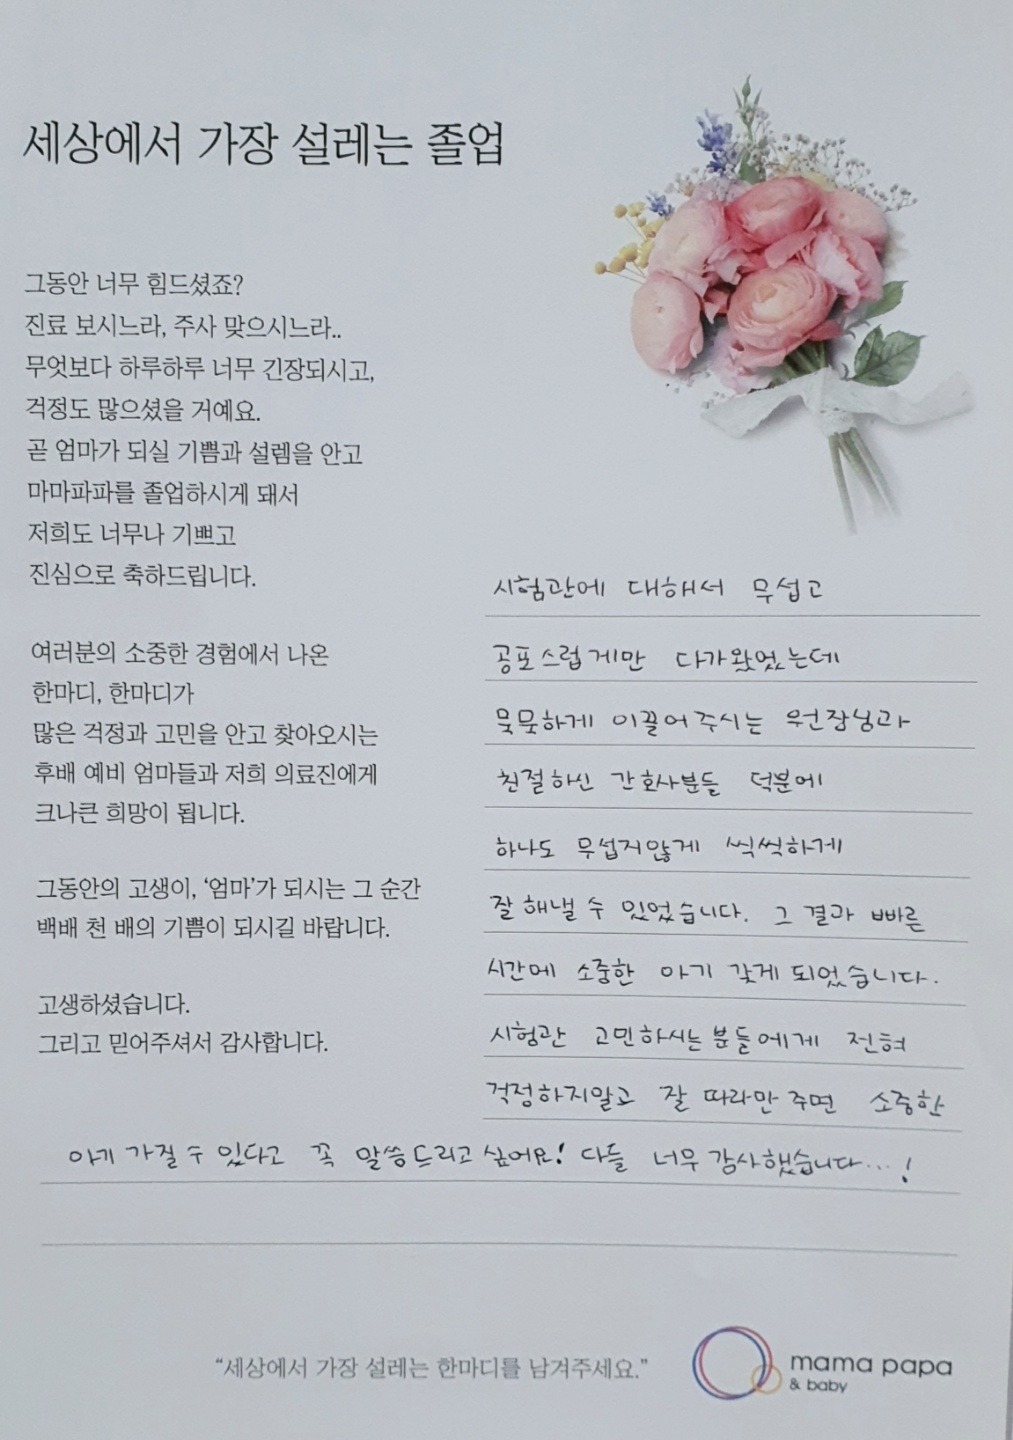 세상에서 가장 설레는 졸업
그동안 너무 힘드셨죠?
진료 보시느라, 주사 맞으시느라..
무엇보다 하루하루 너무 긴장되시고,
걱정도 많으셨을 거예요.
곧 엄마가 되실 기쁨과 설렘을 안고
마마파파를 졸업하시게 돼서
저희도 너무나 기쁘고
진심으로 축하드립니다.
여러분의 소중한 경험에서 나온
한마디, 한마디가
많은 걱정과 고민을 안고 찾아오시는
후배 예비 엄마들과 저희 의료진에게
크나큰 희망이 됩니다.
그동안의 고생이, ‘엄마’가 되시는 그 순간
백배 천 배의 기쁨이 되시길 바랍니다.
고생하셨습니다.
그리고 믿어주셔서 감사합니다.
시험관에 대해서 무섭고
공포스럽게만 다가왔었는데
묵묵하게 이끌어주시는 원장님과
친절하신 간호사분들 덕분에
하나도 무섭지않게 씩씩하게
잘 해낼 수 있었습니다. 그 결과 빠른
시간에 소중한 아기 갖게 되었습니다.
시험관 고민하시는 분들에게 전혀
걱정하지말고 잘 따라만 주면 소중한
아기 가질 수 있다고 꼭 말씀드리고 싶어요! 다들 너무 감사했습니다...!
“세상에서 가장 설레는 한마디를 남겨주세요.”
mama papa
& baby